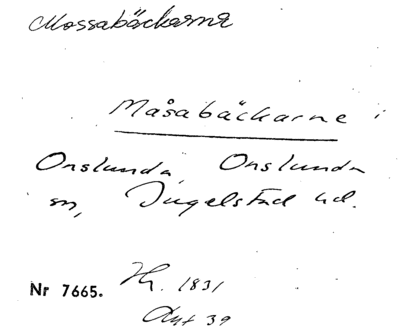 Mossabäckarne
Måsabäckarne i
Onslunda, Onslunda
sn, Ingelstad hd.
Nr 7665. Hr. 1831
Akt 39